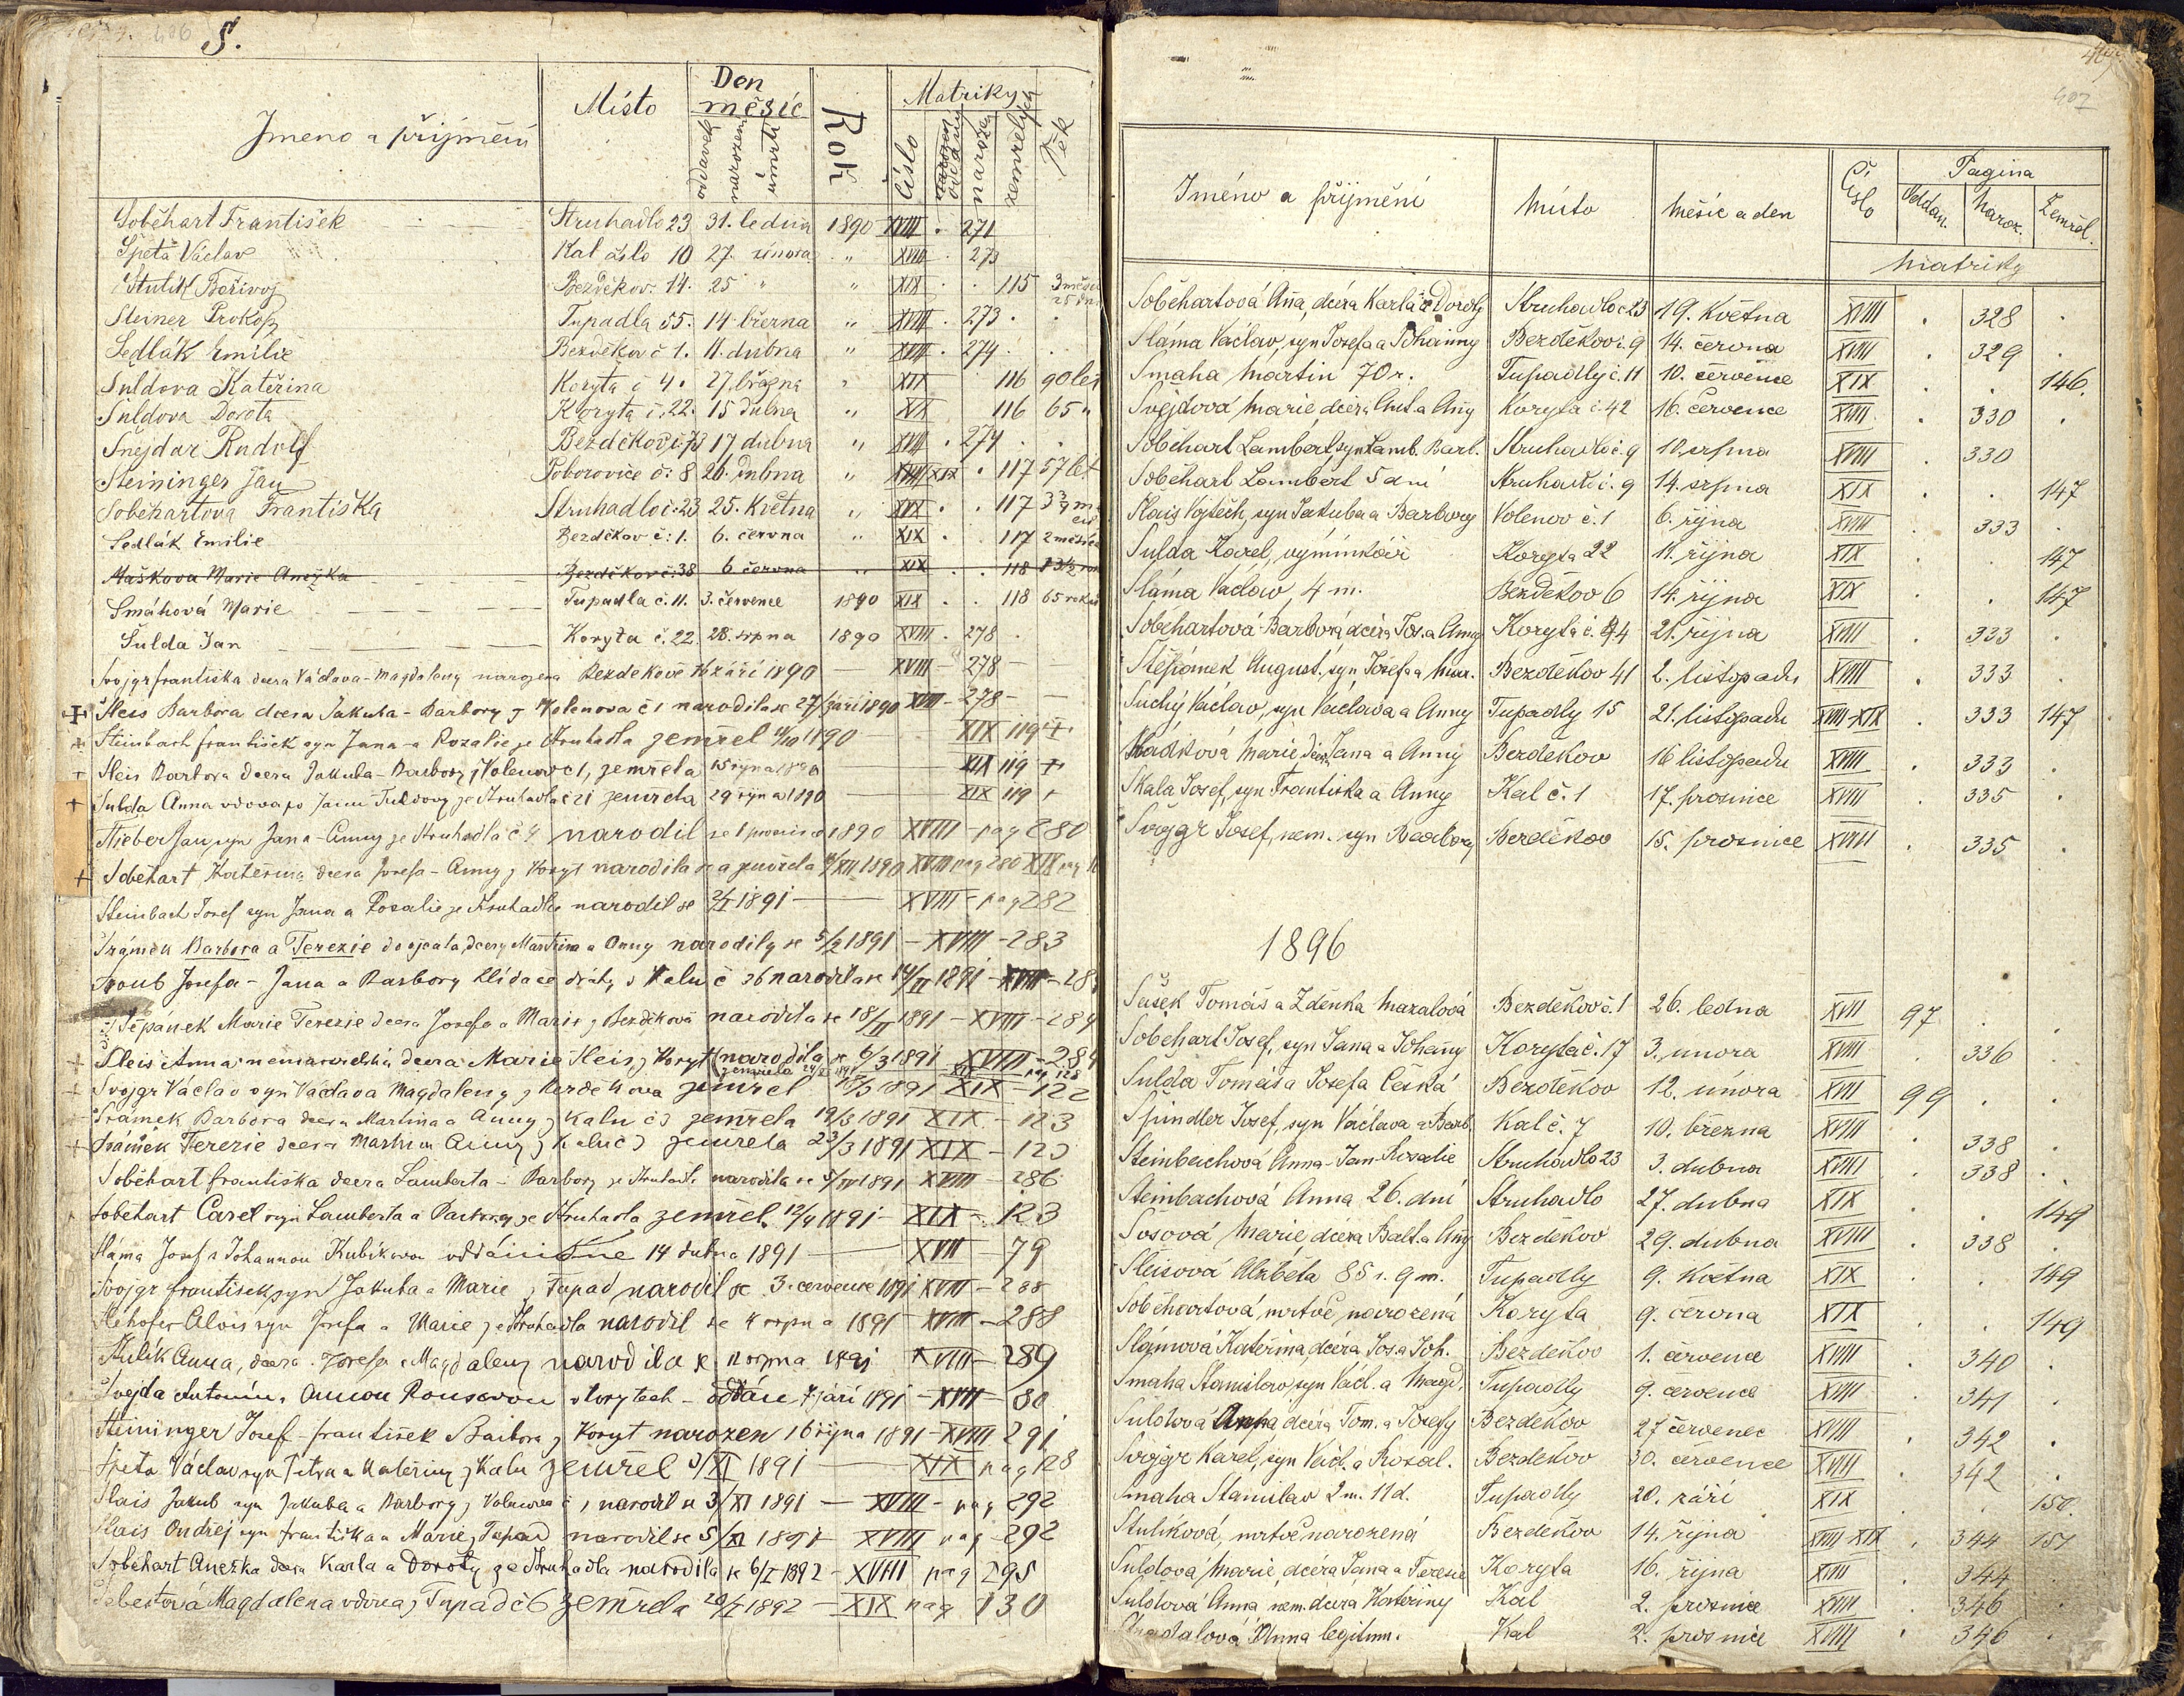 406 S.
Jmeno a přijmění Místo Den měsíc oddavek narození úmrtí Rok Matriky číslo oddaných narozen zemřelých Věk
Soběhart František Struhadlo 23 31. ledna 1890 XVIII 271
Speta Václav Kal číslo 10 27. února " XVIII 273
Stulík Bořivoj Bezděkov. 14. 25 " " XIX 115
Steiner Prokop Tupadla 55. 14. března " XVIII 273
Sedlák Emilie Bezděkov č 1. 11. dubna " XVIII 274
Šuldova Kateřina Koryta č 4. 27. března " XIX 116 90 let
Šuldova Dorota Koryta č. 22. 15 dubna " XIX 116 65 "
Šnejdar Rudolf Bezděkov č. 73 17 dubna " XVIII 274
Steininger Jan Poborovice č: 8 26. dubna " XIX 117 57 let
Soběhartova Františka Struhadlo č. 23 25. Května " XIX 117
Sedlák Emilie Bezděkov č: 1. 6. června " XIX 117 2 měsíce
Maškova Marie Anežka Bezděkov č: 38 6 června " XIX 118
Smáhová Marie Tupadla č. 11. 3. července 1890 XIX 118 65 roků
Šulda Jan Koryta č. 22. 28. srpna 1890 XVIII 278
Svojgr františka dcera Václava - Magdaleny narozena Bezdekově 16 září 1890 XVIII - 278
Sleis Barbora dcera Jakuba - Barbory z Volenova č 1 narodila se 27/září 1890 XVIII - 278
Steinbach františek syn Jana - a Rozalie ze Struhadla zemřel 11/10 1890 XIX 119
Sleis Barbora dcera Jakuba - Barbory z Volenov č 1, zemřela 15 října 1890 XIX 119
Šulda Anna vdova po Janu Šuldovy ze Struhadla č 21 zemřela 29 října 1890 XIX 119
Stieber Jan, syn Jana - Anny ze Struhadla č 4 narodil se 1 prosince 1890 XVIII - pag 280
Soběhart Kateřina dcera Josefa - Anny z Koryt narodila se a zemřela /XII 1890 XVIII pag 280 XIX pag
Steinbach Josef syn Jana a Rosalie ze Struhadla narodil se 2/I 1891 XVIII - pag 282
Šrámek Barbora a Terezie dvojčata, dcery Martina a Anny narodily se 5/2 1891 - XVIII - 283
Sroub Josefa - Jana a Barbory hlídače dráhy z Kalu č 36 narodila se 14/II 1891 - XVIII - 28
Štěpánek Marie Terezie dcera Josefa a Marie z Bezděkova narodila se 18/II 1891 - XVIII - 284
Sleis Anna nemanželská dcera Marie Sleis z Koryt (narodila se 6/3 1891 XVIII - 284
Svojgr Václav syn Václava Magdaleny z Bezdekova zemřel /3 1891 XIX - 122
Šrámek Barbora dcera Martina a Anny z Kalu č 3 zemřela 19/3 1891 XIX - 123
Šrámek Terezie dcera Martina Anny z Kalu č 3 zemřela 23/3 1891 XIX - 123
Soběhart františka dcera Lamberta - Barbory ze Struhadla narodila se 5/IV 1891 XVIII - 286
Sobehart Carel syn Lamberta a Barbory ze Struhadla zemřel 12/4 1891 - XIX - 123
Sláma Josef s Johannou Kubíkovou oddáni dne 14 dubna 1891 XVII 79
Svojgr františek, syn Jakuba a Marie z Tupad narodil se 3. července 1891 XVIII - 288
Stehofer Alois syn Josefa a Marie ze Struhadla narodil se 4 srpna 1891 XVIII - 288
Stulík Anna, dcera Josefa a Magdaleny narodila se srpna 1891 XVIII - 289
Švejda Antonín s Annou Rousovou v Korytech - oddáni 7 září 1891 - XVII - 80
Steininger Josef - františek a Barbora z Koryt narozen 16 října 1891 - XVIII 291
Speta Václav syn Petra a Kateřiny z Kalu zemřel 3/XI 1891 XIX pag 128
Slais Jakub syn Jakuba a Barbory z Volenova č 1 narodil se 3/XI 1891 - XVIII - pag 292
Slais Ondřej syn františka a Marie z Tupad narodil se 5/XI 1891 XVIII pag - 292
Soběhart Anežka dcera Karla a Doroty ze Struhadla narodila se 6/I 1892 - XVIII pag 295
Magdalena vdova z Tupad č 6 zemřela 20/I 1892 - XIX pag 130
407
Jméno a přijmění Místo Měsíc a den Číslo Pagina Oddan. Naroz. Zemřel.
Matriky
Soběhartová Anna, dcéra Karla a Doroty Struhadlo č 23 19. Května XVIII 328
Sláma Václav, syn Josefa a Johanny Bezděkov č. 9 14. června XVIII 329
Smaha Martin 70 r. Tupadly č. 11 10. července XIX 146.
Švejdová Marie, dcéra Ant. a Anny Koryta č. 42 16. července XVIII 330
Soběhart Lambert, syn Lamb. Barb. Struhadlo č. 9 10. srpna XVIII 330
Soběhart Lambert 5 dní Struhadlo č. 9 14. srpna XIX 147
Slais Vojtěch, syn Jakuba a Barbory Volenov č. 1 6. října XVIII 333
Šulda Karel, výminkář Koryta 22 11. října XIX 147
Sláma Václav, 4 m. Bezděkov 6 14. října XIX 147
Soběhartová Barbora, dcéra Jos. a Anny Koryta č. 44 21. října XVIII 333
Štěpánek August. syn Josefa a Mar. Bezděkov 41 2. listopadu XVIII 333
Suchý Václav, syn Václava a Anny Tupadly 15 21. listopadu XVIII-XIX 333 147
Sladková Marie, dcera Jana a Anny Bezděkov 16 listopadu XVIII 333
Skala Josef, syn Františka a Anny Kal č. 1 17. prosince XVIII 335
Svojgr Josef, nem. syn Barbory Bezděkov 15. prosince XVIII 335
1896
Sašek Tomáš a Zdeňka Mazalová Bezděkov č. 1 26. ledna XVII 97
Soběhart Josef, syn Jana a Johanny Koryta č. 17 3. února XVIII 336
Šulda Tomáš a Josefa Češká Bezděkov 12. února XVII 99
Špindler Josef, syn Václava a Barb. Kal č. 7 10. března XVIII 338
Steinbachová Anna - Jan - Rosalie Struhadlo 23 3. dubna XVIII 338
Steinbachová Anna 26. dní Struhadlo 27. dubna XIX 149
Sosová Marie, dcéra Balt. a Anny Bezděkov 29. dubna XVIII 338
Sleisová Alžběta 85 r. 9 m. Tupadly 9. Května XIX 149
Soběhartová, mrtvě narozená Koryta 9. června XIX 149
Slámová Kateřina, dcéra Jos. a Joh. Bezděkov 1. července XVIII 340
Smaha Stanislav, syn Václ. a Magd. Tupadly 9. července XVIII 341
Šuldová Anna dcéra Tom. a Josefy Bezděkov 27 červenec XVIII 342
Svojgr Karel, syn Václ. a Rosal. Bezděkov 30. července XVIII 342
Smaha Stanislav 2 m. 11 d. Tupadly 20. září XIX 150
Stulíková, mrtvě narozená Bezděkov 14. října XVIII XIX 344 151
Šuldová Marie, dcéra Jana a Terezie Koryta 16. října XVIII 344
Šuldová Anna, nem. dcéra Kateřiny Kal 2. prosince XVIII 346
Anna legitim. Kal 2. prosince XVIII 346